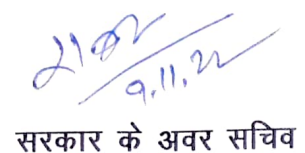 9.11.22
सरकार के अवर सचिव